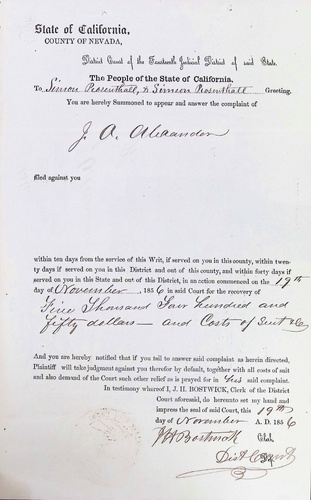 State of California,
COUNTY OF NEVADA,
District Court of the Fourteenth Judicial District of said State.
The People of the State of California,
To Simon Rosenthall, & Simon Rosenthall Greeting.
You are hereby Summoned to appear and answer the complaint of
J. A. Alexander
filed against you
within ten days from the service of this Writ, if served on you in this county, within twen-
ty days if served on you in this District and out of this county, and within forty days if
served on you in this State and out of this District, in an action commenced on the 19th
day of November, 1856 in said Court for the recovery of
Five Thousand Four hundred and
fifty dollars — and Costs of Suit &c
And you are hereby notified that if you fail to answer said complaint as herein directed,
Plaintiff will take judgment against you therefor by default, together with all costs of suit
and also demand of the Court such other relief as is prayed for in his said complaint.
In testimony whereof I, J. H. BOSTWICK, Clerk of the District
Court aforesaid, do hereunto set my hand and
impress the seal of said Court, this 19th
day of November A. D. 1856
J H Bostwick Clerk,
Dist Court